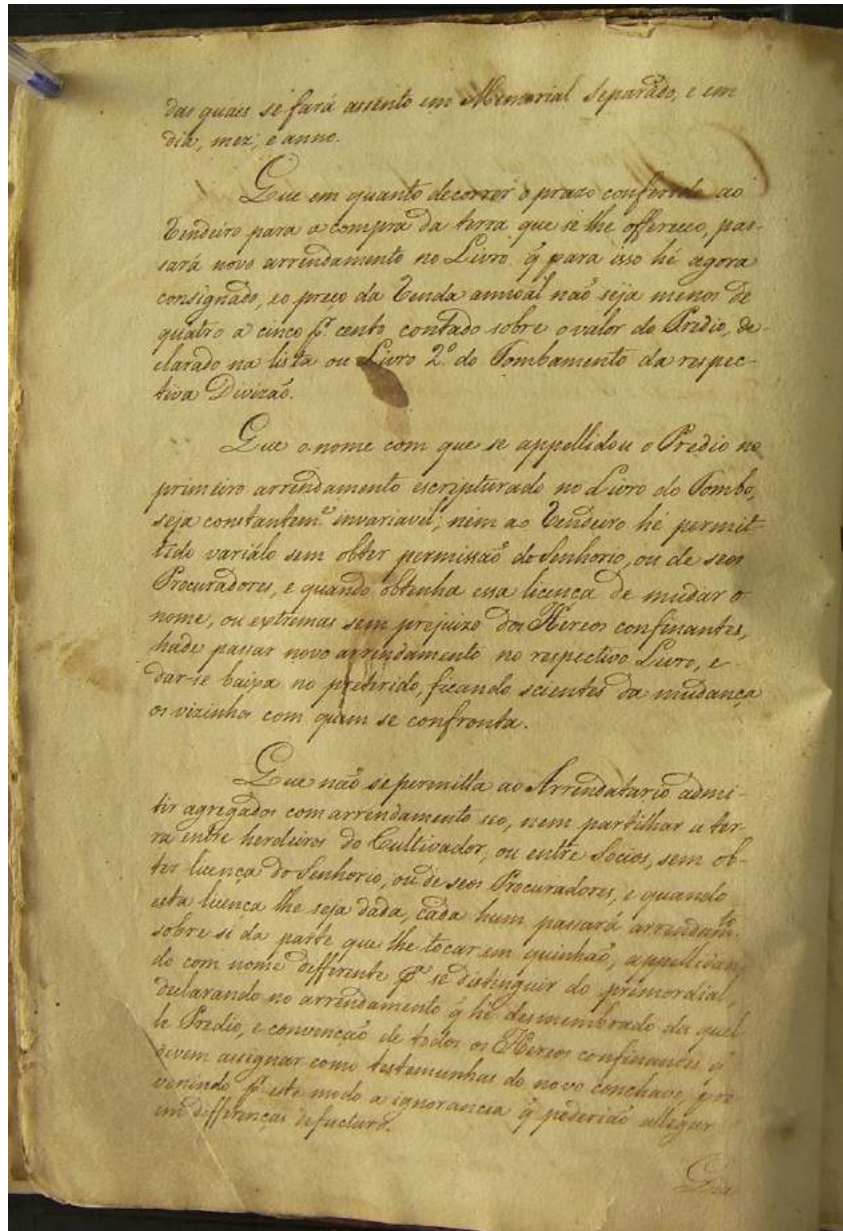 das quaes se fará assento em Memorial separado, e em
dia, mez, e anno.
Que em quanto decorrer o prazo conferido ao
Rendeiro para a compra da terra que se lhe offerece, pas-
sará novo arrendamento no Livro q̃ para isso hé agora
consignado, e o preço da Renda annoal não seja menos de
quatro a cinco p.r cento contado sobre o valor do Predio, de-
clarado na lista ou Livro 2.º do Tombamento da respec-
tiva Divizão.
Que o nome com que se appellidou o Predio no
primeiro arrendamento escripturado no Livro do Tombo,
seja constantem.e invariavel; nem ao Rendeiro hé permit-
tido variálo sem obter permissão do Senhorio, ou de seos
Procuradores, e quando obtenha essa licença de mudar o
nome, ou extremas sem prejuizo dos Hereos confinantes,
hade passar novo arrendamento no respectivo Livro, e
dar-se baixa no preterido, ficando scientes da mudança
os vizinhos com quem se confronta.
Que não se permitta ao Arrendatario admi-
tir agregados com arrendamento seo, nem partilhar a ter-
ra entre herdeiros do Cultivador, ou entre Socios, sem ob-
ter licença do Senhorio, ou de seos Procuradores, e quando
esta licença lhe seja dada, cada hum passará arrendam.to
sobre si da parte que lhe tocar em quinhão, appellidan
do com nome differente p.a se distinguir do primordial,
declarando no arrendamento q̃ hé desmembrado da quel
le Predio, e convenção de todos os Hereos confinantes q̃
devem assignar como testemunhas do novo conchavo, pre
venindo p.r este modo a ignorancia q̃ poderião allegar
em differenças de futuro.
Que